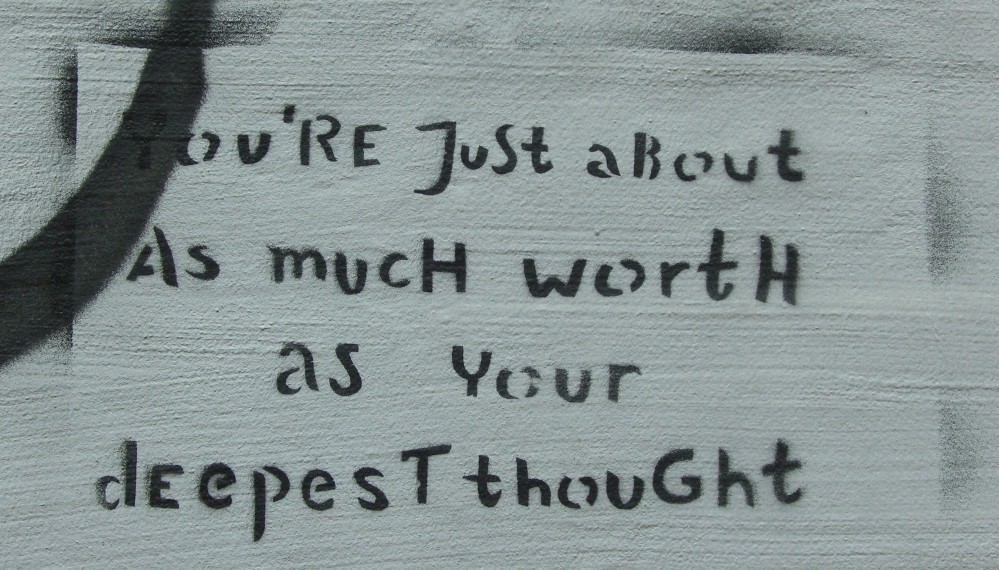 YOU'RE JuSt aBout
As mucH wortH
as Your
dEepesT thouGht